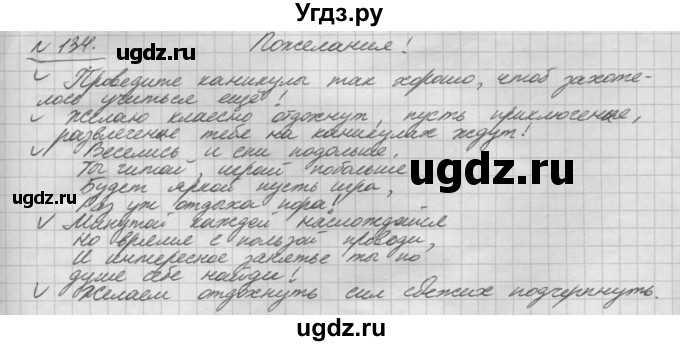 Угдз.ру
№ 134. Пожелания!
✓ Проведите каникулы так хорошо, чтоб захоте-
лось учиться ещё!
✓ Желаю классно отдохнут, пусть приключенье,
развлеченье тебе на каникулах ждут!
✓ Веселись и спи подольше,
Ты читай, играй побольше
Будет яркой пусть игра,
Раз уж отдыха пора!
✓ Минутой каждой наслаждайся
Но время с пользой проводи,
И интересное занятье ты по
душе себе найди!
✓ Желаем отдохнуть сил свежих подчерпнуть.
uгдz.ru
uгдz.ru
uгдz.ru
uгдz.ru
uгдz.ru
uгдz.ru